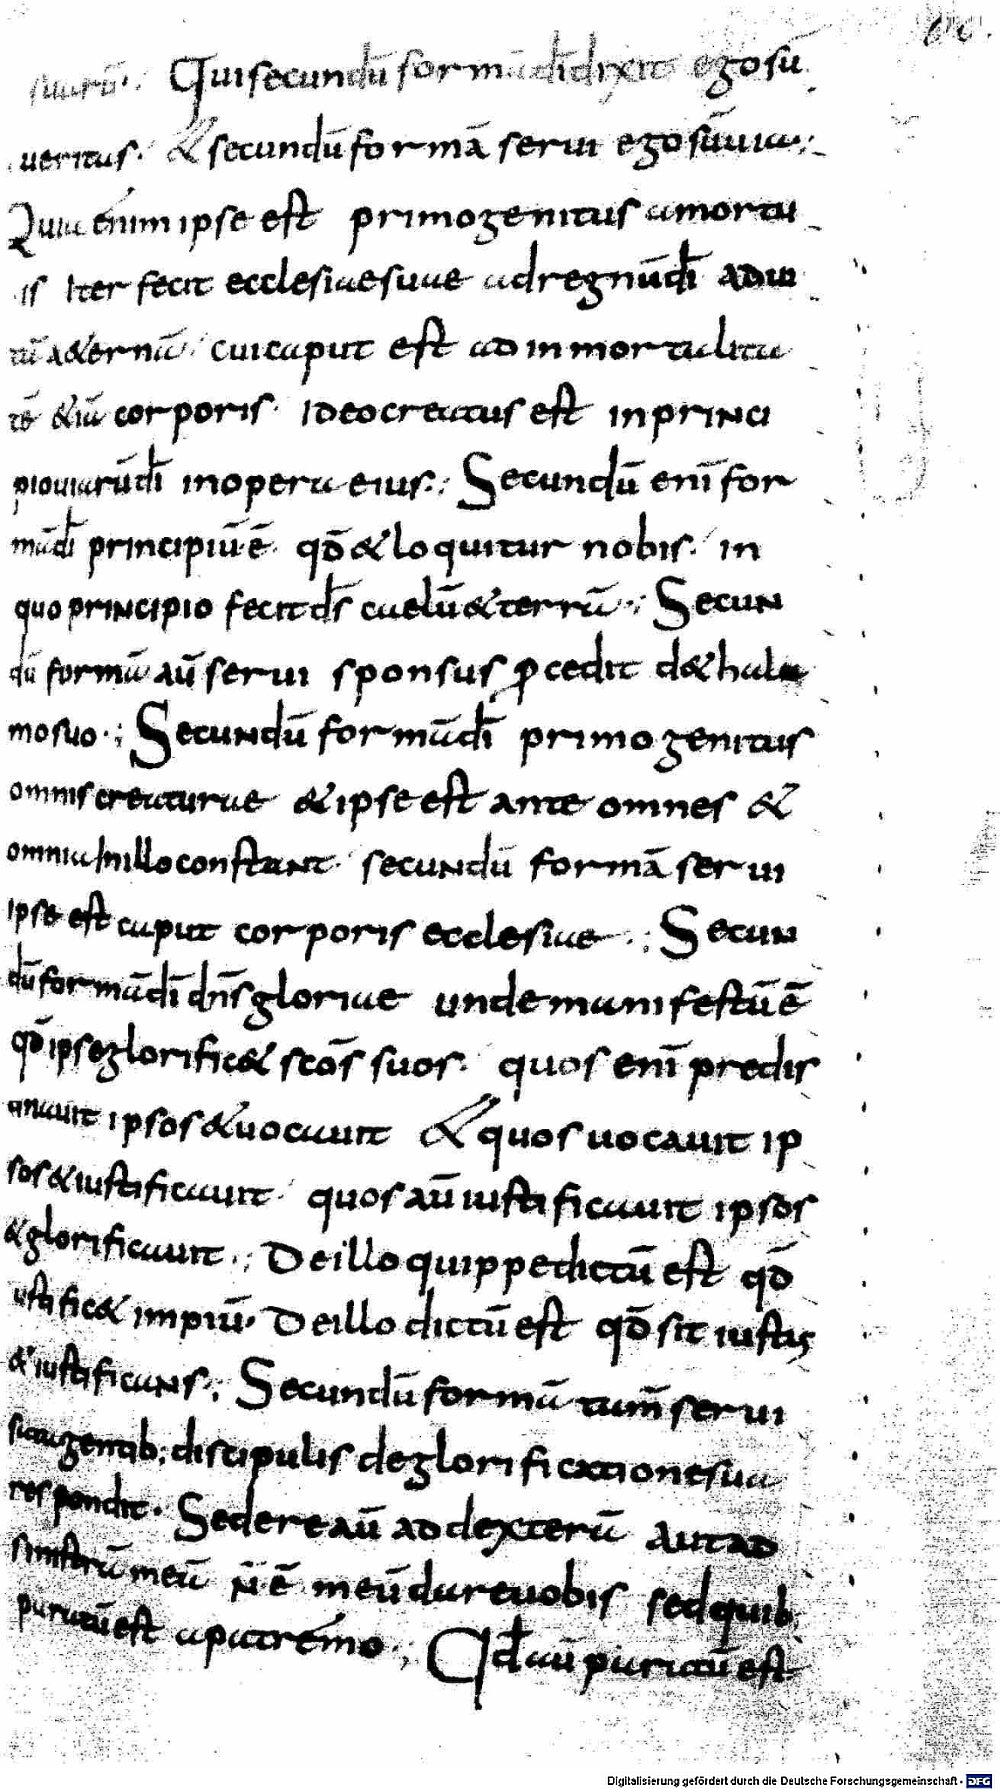 66.
suarũ. Qui secundũ formã dĩ dixit ego sũ
ueritas. & secundũ formã serui ego sũ uia;
Quia enim ipse est primogenitus a mortu
is Iter fecit ecclesiae suae ad regnũ dĩ ad ui
tã a&ernã. cui caput est ad inmortalita
tẽ &iã corporis. Ideo creatus est in princi
pio uiarũ dĩ in opera eius; Secundũ enĩ for
mã dĩ principiũ ẽ. qđ & loquitur nobis. in
quo principio fecit d̃s caelũ & terrã; Secun
dũ formã aũ serui sponsus ꝓcedit de thala
mo suo; Secundũ formã dĩ primogenitus
omnis creaturae & ipse est ante omnes &
omnia In illo constant. secundũ formã serui
ipse est caput corporis ecclesiae; Secun
dũ formã dĩ dñs gloriae unde manifestũ ẽ
qđ ipse glorific& scõs suos. quos enĩ predis
tinauit ipsos & uocauit & quos uocauit ip
sos & iustificauit. quos aũ iustificauit ipsos
& glorificauit; De illo quippe dictũ est qđ
iustific& impiũ. De illo dictũ est qđ sit iustus
& iustificans; Secundũ formã tam̃ serui
discipulis de glorificatione sua
respondit. Sedere aũ ad dexterã aut ad
sinistrã meã ñ ẽ meũ dare uobis sed quib;
paratũ est a patre meo; Qđ aũ paratũ est
Digitalisierung gefördert durch die Deutsche Forschungsgemeinschaft - DFG